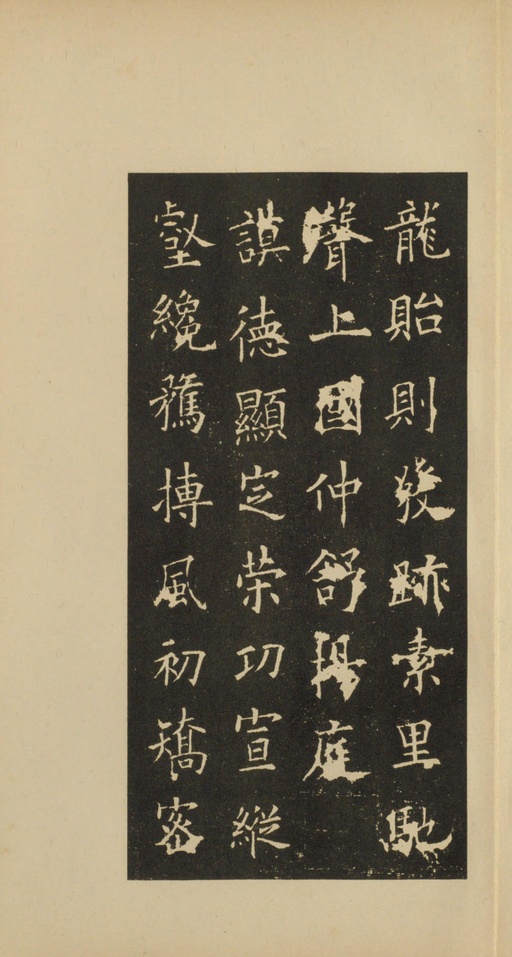 龍貽則發跡素里馳
聲上國仲舒揚庭
謨德顯定荣功宣縱
壑纔搏風初矯密